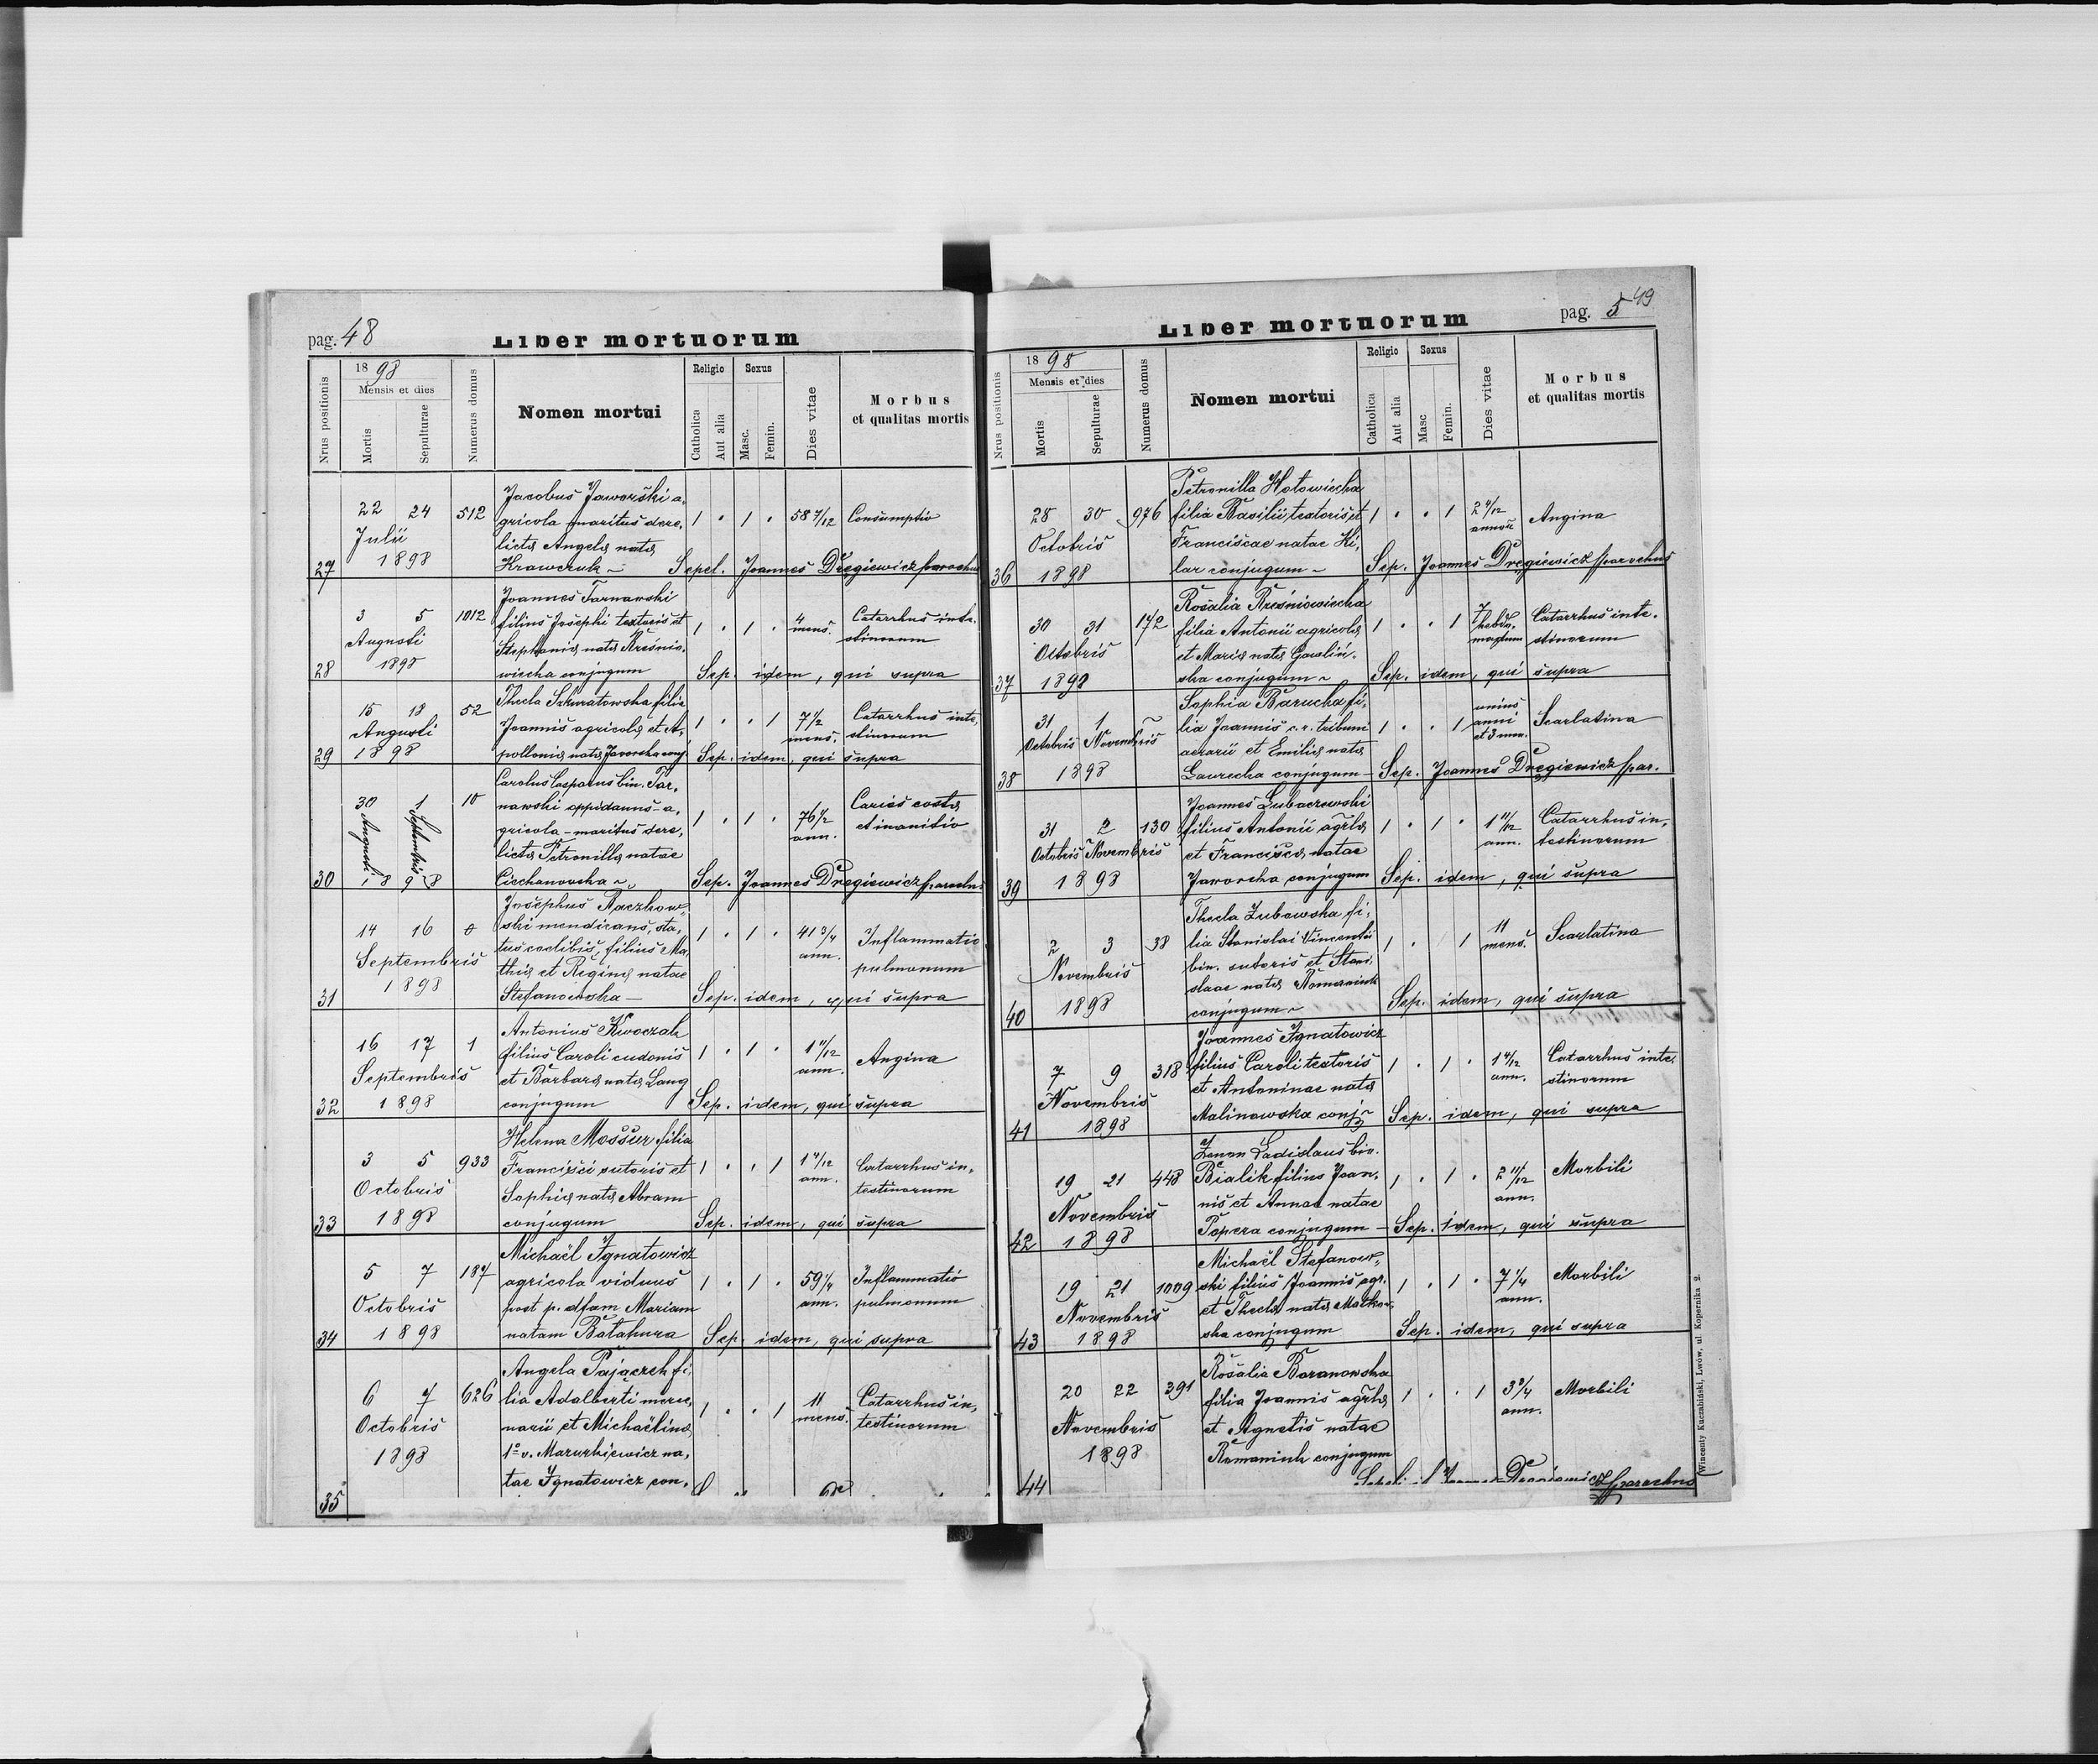 pag. 48
Liber mortuorum
Nrus positionis
1898
Mensis et dies
Mortis
Sepulturae
Numerus domus
Nomen mortui
Religio
Catholica
Aut alia
Sexus
Masc.
Femin.
Dies vitae
Morbus
et qualitas mortis
Jacobus Jaworski a,
22 24 512 gricola maritus dere, 1 . 1 . 58 7/12 Consumptio
Julii lictae Angelae natae
27 1898 Krawczuk ~ Sepel. Joannes Dręgiewicz parochus
Joannes Tarnawski
3 5 1012 filius Josephi textoris et 1 . 1 . 4 mens. Catarrhus inte,
Augusti Stephaniae natae Rześnio, stinorum
28 1898 wiecka conjugum Sep. idem, qui supra
Thecla Szkuratowska filia
15 18 52 Joannis agricolae et A, 1 . . 1 7 1/2 mens. Catarrhus inte,
Augusti stinorum
29 1898 polloniae natae Jaworska conj Sep. idem, qui supra
Carolus Casparus bin. Tar,
30 1 10 nawski oppidanus - a, 1 . 1 . 76 1/2 ann. Caries costae
Augusti Septembris gricola - maritus dere, et inanitio
lictae Petronillae natae
30 1898 Ciechanowska ~ Sep. Joannes Dręgiewicz parochus
Josephus Raczkow,
14 16 0 ski mendicans, sta, 1 . 1 . 41 3/4 ann. Inflammatio
Septembris tus coelibis, filius Ma, pulmonum
1898 thiae et Reginae natae
31 Stefanowska - Sep. idem, qui supra
Antonius Kwoczak
16 17 1 filius Caroli cudonis 1 . 1 . 1 11/12 ann. Angina
Septembris et Barbarae natae Lang
32 1898 conjugum Sep. idem, qui supra
Helena Mossur filia
3 5 933 Francisci sutoris et 1 . . 1 ann. Catarrhus in,
Octobris Sophiae natae Abram testinorum
33 1898 conjugum Sep. idem, qui supra
Michaël Ignatowicz
5 7 187 agricola viduus 1 . 1 . 59 1/4 ann. Inflammatio
Octobris post p. dfam Mariam pulmonum
34 1898 natam Batahura Sep. idem, qui supra
Angela Pajączek fi,
6 7 626 lia Adalberti merce, 1 . . 1 11 mens. Catarrhus in,
Octobris narii et Michaëlinae testinorum
1898 1º v. Mazurkiewicz na,
35 tae Ignatowicz con,
pag. 5 49
Liber mortuorum
Nrus positionis
1898
Mensis et dies
Mortis
Sepulturae
Numerus domus
Nomen mortui
Religio
Catholica
Aut alia
Sexus
Masc
Femin.
Dies vitae
Morbus
et qualitas mortis
Petronilla Hotowiecka
28 30 976 filia Basilii, textoris et 1 . . 1 2 4/12 annor. Angina
Octobris Franciscae natae Ki,
36 1898 lar conjugum ~ Sep. Joannes Dręgiewicz parochus
Rosalia Rześniowiecka
30 31 172 filia Antonii agricolae 1 . . 1 7 hebdo, Catarrhus inte,
Octobris et Mariae natae Gawliń, madum stinorum
37 1898 ska conjugum ~ Sep. idem, qui supra
Sophia Barucka fi,
31 1 ~ lia Joannis c. r. tribuni 1 . . 1 unius anni et 3 men. Scarlatina
Octobris Novembris aerarii et Emiliae natae
38 1898 Laurecka conjugum - Sep. Joannes Dręgiewicz par.
Joannes Lubaczewski
31 2 130 filius Antonii agrlae 1 . 1 . 1 11/12 ann. Catarrhus in,
Octobris Novembris et Franciscae natae testinorum
39 1898 Jaworska conjugum Sep. idem, qui supra
Thecla Zubowska fi,
2 3 38 lia Stanislai Vincentii 1 . 1 11 mens. Scarlatina
Novembris bin. sutoris et Stani,
slaae natae Romaniuk
40 1898 conjugum ~ Sep. idem, qui supra
Joannes Ignatowicz
7 9 318 filius Caroli textoris 1 . 1 . 1 4/12 ann. Catarrhus inte,
Novembris et Antoninae natae stinorum
41 1898 Malinowska conj ~ Sep. idem, qui supra
Zenon Ladislaus bin.
19 21 448 Bialik filius Joan, 1 . 1 . 2 11/12 ann. Morbili
Novembris nis et Annae natae
42 1898 Popera conjugum - Sep. idem, qui supra
Michaël Stefanow,
19 21 1009 ski filius Joannis agr. 1 . 1 . 7 1/4 ann. Morbili
Novembris et Theclae natae Matkow,
43 1898 ska conjugum Sep. idem, qui supra
Rosalia Baranowska
20 22 391 filia Joannis agrlae 1 . . 1 3 3/4 ann. Morbili
Novembris et Agnetis natae
1898 Romaniuk conjugum
44 Dręgiewicz parochus
Wincenty Kuczabiński, Lwów, ul. Kopernika 2.